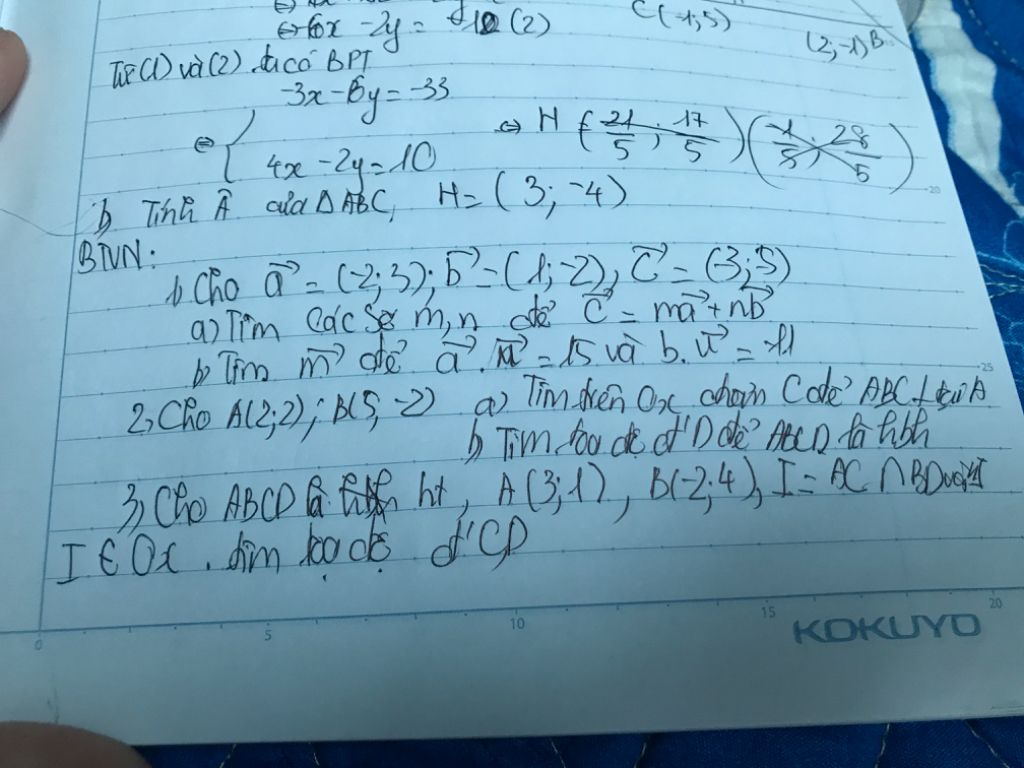 ⇔ 6x - 2y = 10 (2)
C(-1;5)
(2;-1) B
Từ (1) và (2) ta có BPT
-3x - 6y = -33
⇔ { 4x - 2y = 10
⇔ H (21/5; 17/5) (-1/5; 28/5)
b) Tính Â của ΔABC, H = (3; -4)
BTVN:
1) Cho a⃗ = (-2; 3); b⃗ = (1; -2), c⃗ = (-3; 5)
a) Tìm các số m, n để c⃗ = ma⃗ + nb⃗
b) Tìm m⃗ để a⃗.u⃗ = 15 và b.u⃗ = -11
2, Cho A(2;2); B(5,-2) a) Tìm trên Ox C để ABC ⊥ tại A
b) Tìm tọa độ đ' D để ABCD là hbh
3, Cho ABCD là ht, A(3;1), B(-2;4), I = AC ∩ BD với I
I ∈ Ox. tìm tọa độ đ' C, D
20
25
0 5 10 15 20
KOKUYO